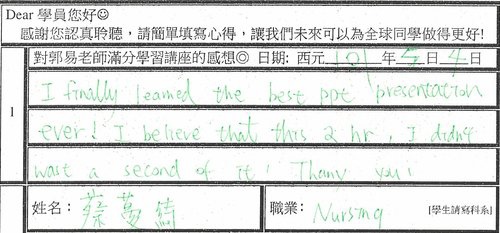 Dear 學員您好☺
感謝您認真聆聽，請簡單填寫心得，讓我們未來可以為全球同學做得更好!
對郭易老師滿分學習講座的感想◎ 日期: 西元 101 年 5 日 4 日
1
I finally learned the best ppt presentation
ever! I believe that this 2 hr, I didn't
wast a second of it! Thany you!
姓名： 蔡 綺 職業： Nursing [學生請寫科系]